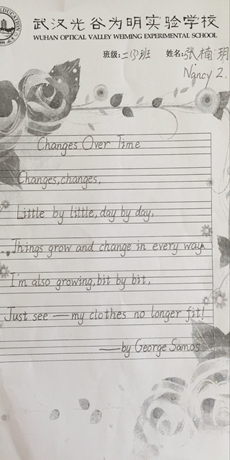 武汉光谷为明实验学校
WUHAN OPTICAL VALLEY WEIMING EXPERIMENTAL SCHOOL
班级: 班 姓名: 张楠玥
Nancy Z.
Changes Over Time
Changes, changes,
Little by little, day by day,
Things grow and change in every way.
I'm also growing, bit by bit,
Just see — my clothes no longer fit!
—by George Samos